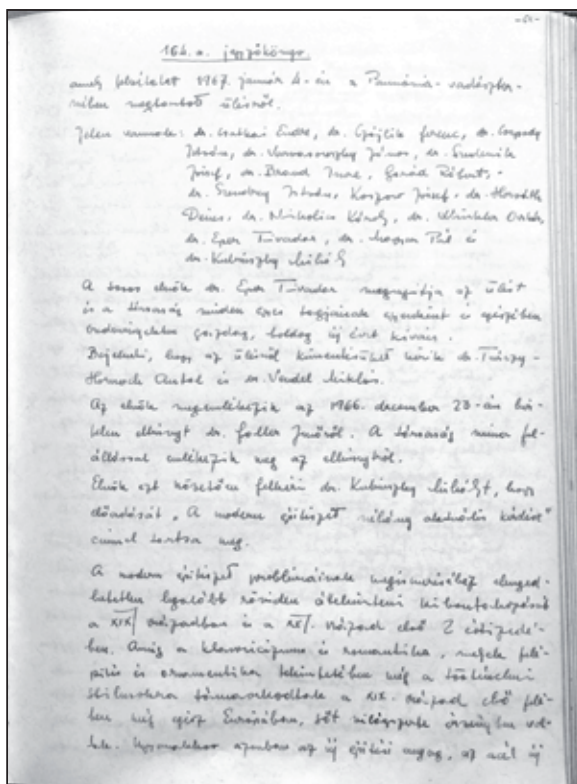 164. a. jegyzőkönyv.
amely felvétetett 1967. január 4-én a Pannónia-vadászter-
mében megtartott ülésről.
Jelen vannak: dr. Csatkai Endre, dr. Ferenc, dr.
István, dr. Varvasovszky János, dr.
József, dr. Brand Imre, Gerád Róbert
dr. Szendrey István, Koszpow József, dr. Horváth
Dénes, dr. Mikolics Károly, dr. Winkler Oszkár,
dr. Eper Tivadar, dr. Magyar Pál és
dr. Kubinszky Mihály
A soros elnök dr. Eper Tivadar megnyitja az ülést
és a társaság minden egyes tagjának egyenként és egészében
gazdag, boldog új évet kíván.
Bejelenti, hogy az ülésről kimentésüket kérik dr. Tárczy-
Hornoch Antal és dr. Vendel Miklós.
Az elnök megemlékezik az 1966. december 23-án hir-
telen elhunyt dr. Faller Jenőről. A társaság néma fel-
állással emlékezik meg az elhunytról.
Elnök ezt követően felkéri dr. Kubinszky Mihályt, hogy
előadását „A modern építészet néhány aktuális kérdése"
címmel tartsa meg.
A modern építészet problémáinak megismeréséhez elenged-
hetetlen legalább röviden áttekinteni kibontakozását
a XIX. században és a XX. század első 2 évtizedé-
ben. Amíg a klasszicizmus és romantika, melyek felé-
pítés és ornamentika tekintetében még a történelmi
stílusokra támaszkodtak a XIX. század első felé-
ben még egész Európában, sőt világszerte érvényben vol-
tak. Ugyanakkor azonban az új építési anyag, az acél új